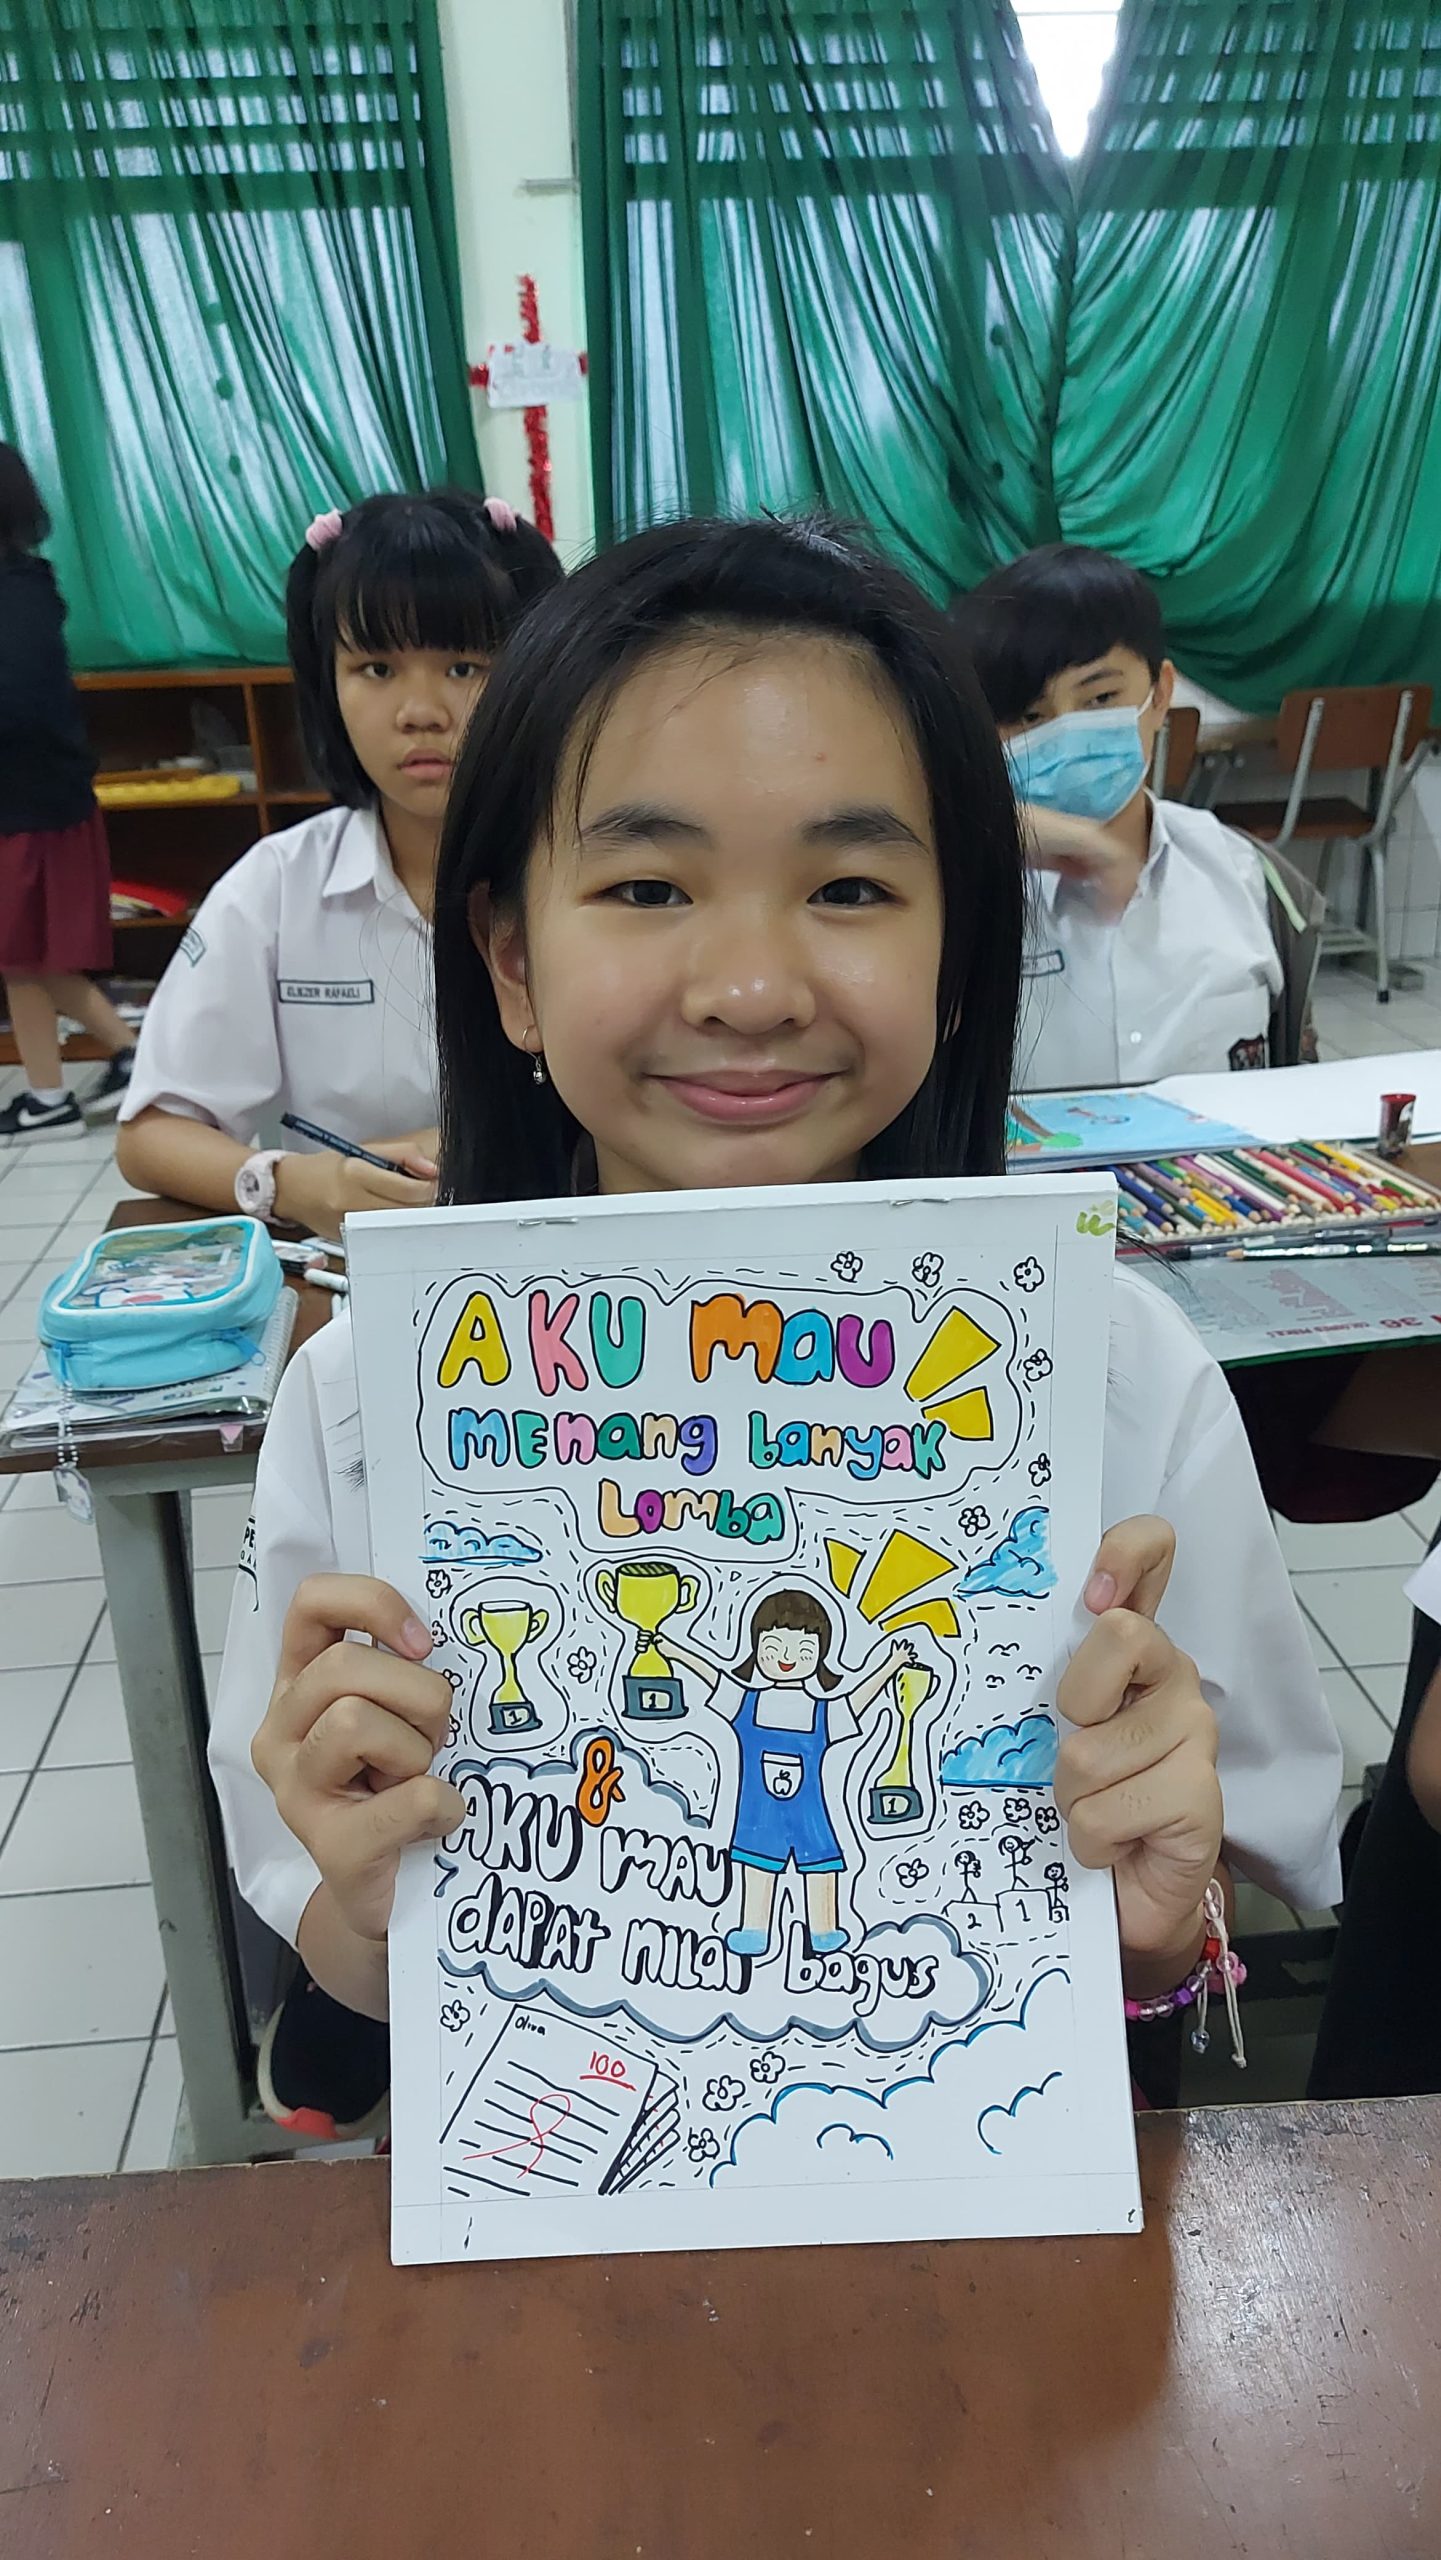 AKU mau
mENang banyak
Lomba
1
1
1
&
AKU mAU
dAPAt nilai bagus
2 1 3
Oliva
100
ELIEZER RAFAELI